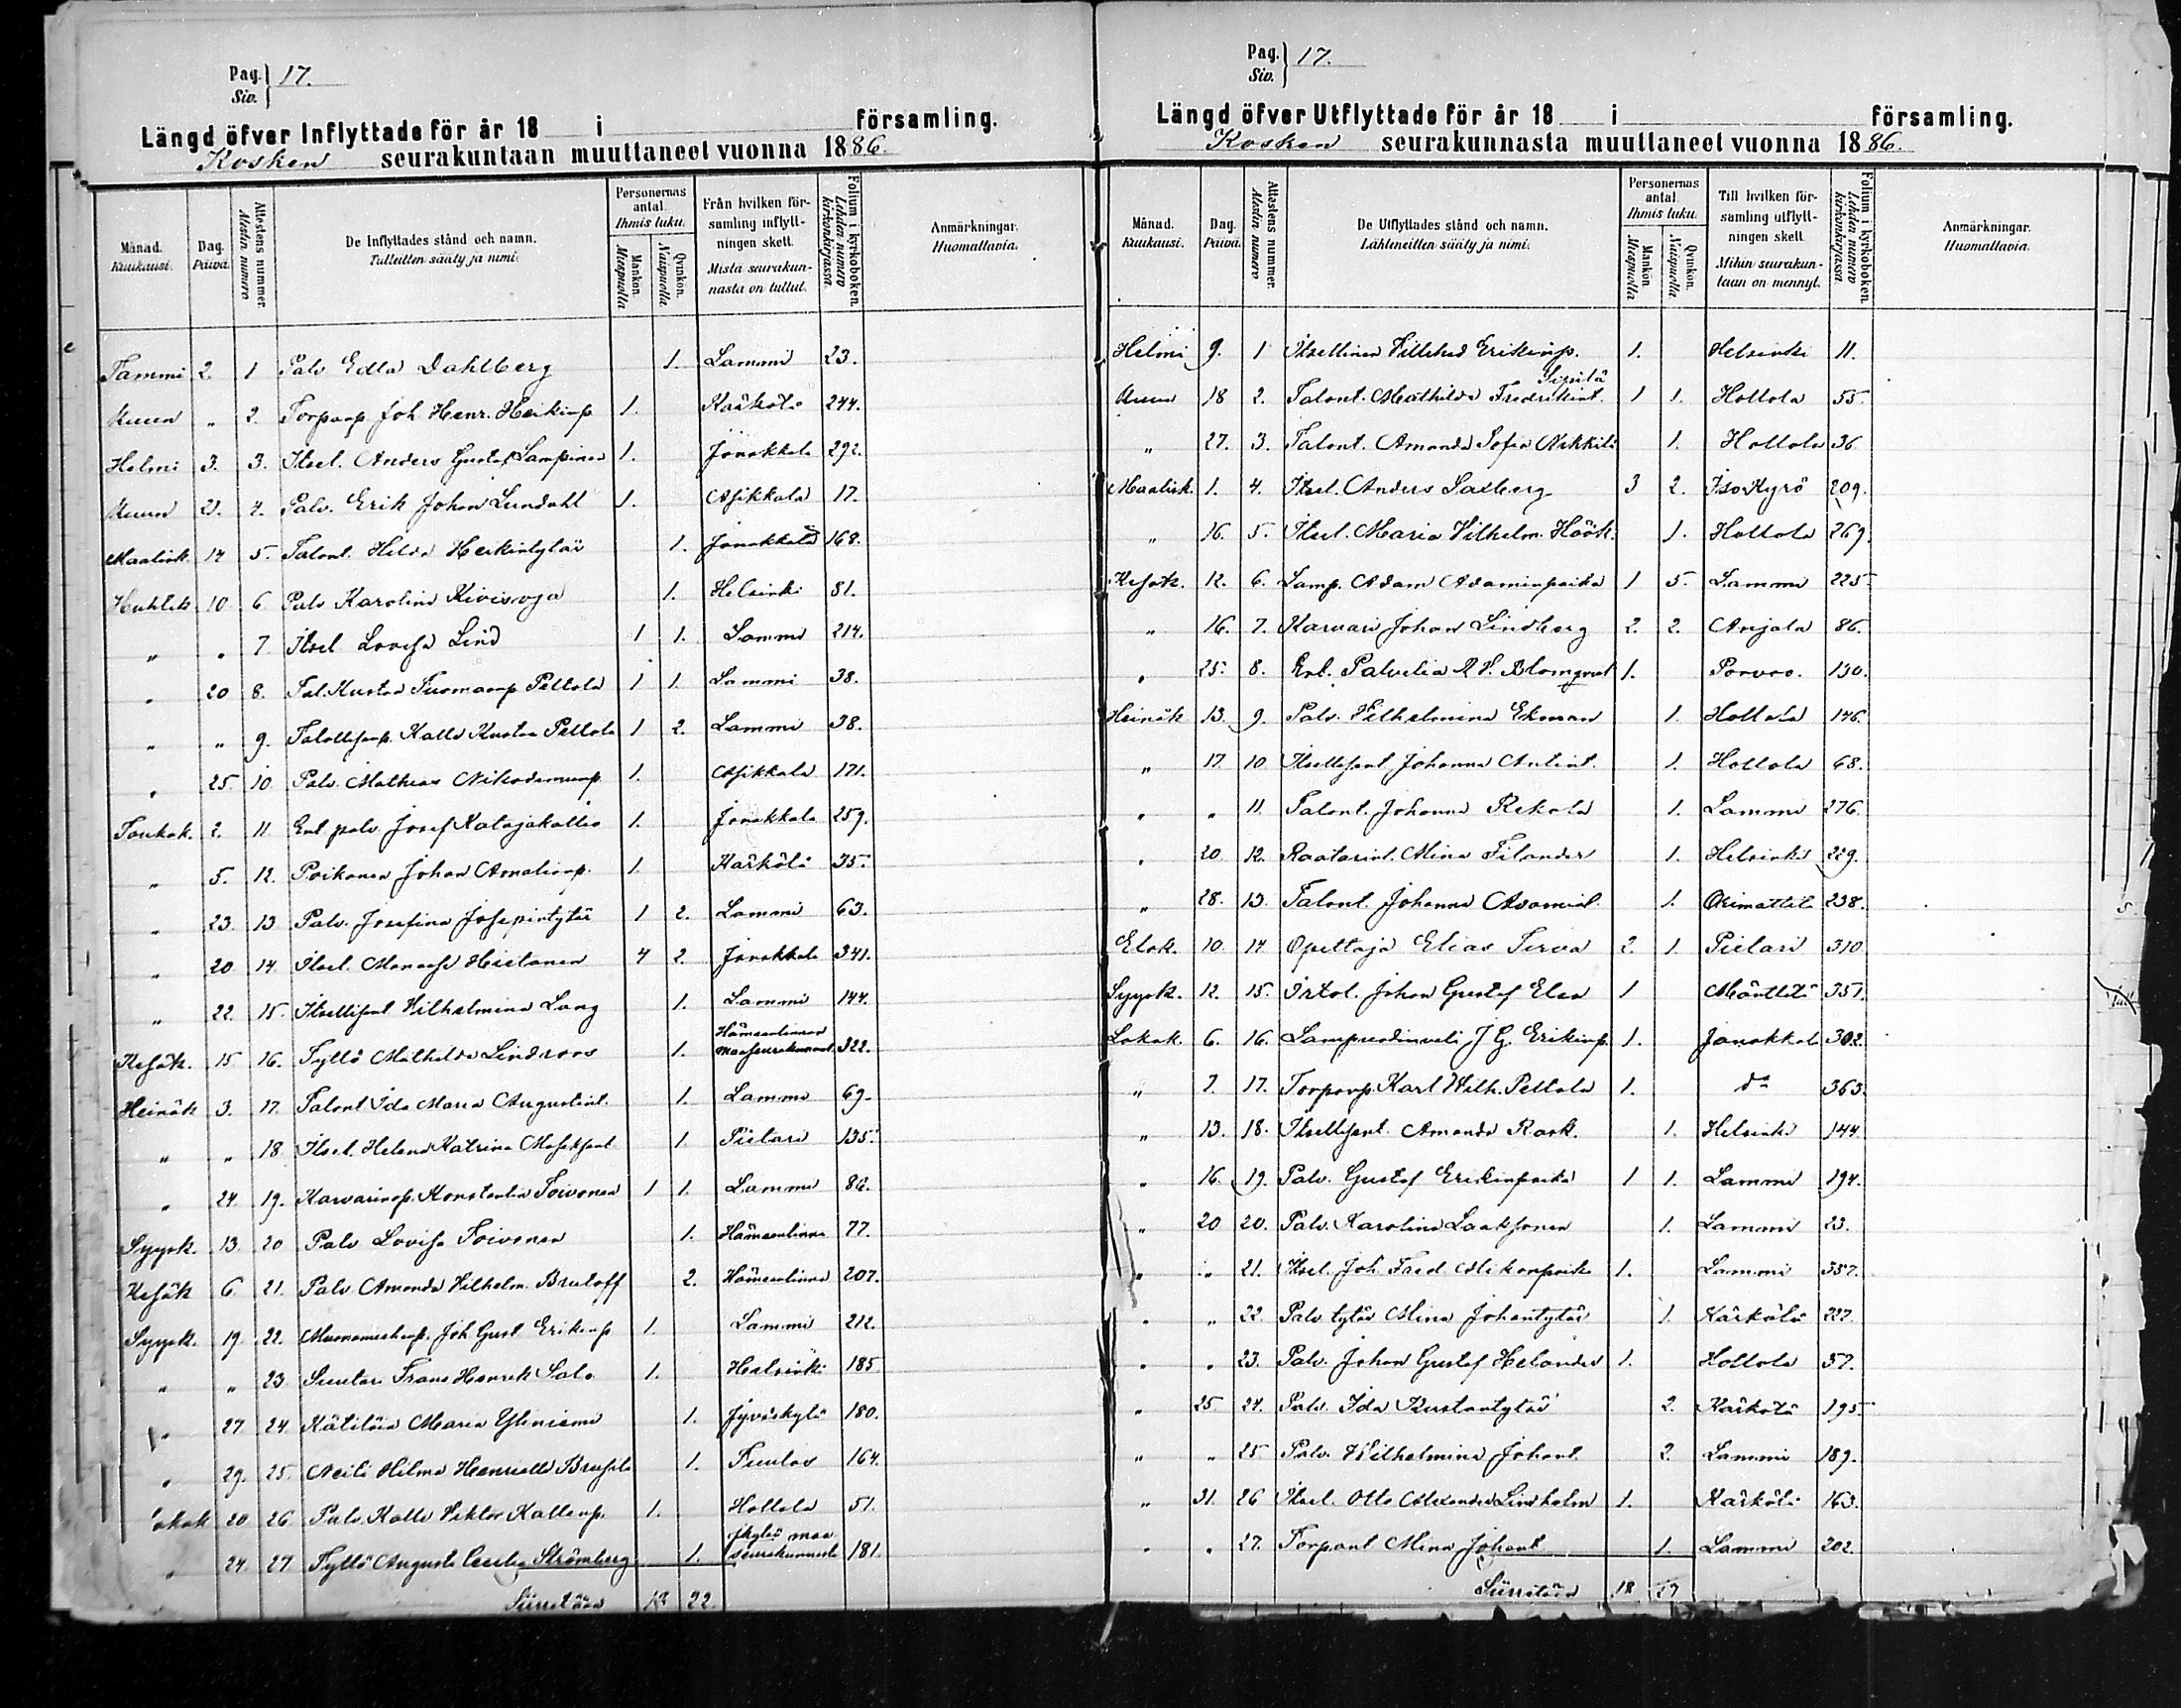 Pag. Siv. } 17.
Längd öfver Inflyttade för år 18 i församling.
Kosken seurakuntaan muuttaneet vuonna 1886.
Månad. Kuukausi. | Dag. Päivä. | Attestens nummer. Alestin numero | De Inflyttades stånd och namn. Tulleitten sääty ja nimi. | Personernas antal. Ihmis luku. Mankön. Miespuolia | Qvinkön. Naispuolia | Från hvilken församling inflyttningen skett. Mista seurakunnasta on tullut. | Folium i kyrkoboken. Lehden numero kirkonkirjassa. | Anmärkningar. Huomattavia.
Tammi 2. 1 Palv Edla Dahlberg 1. Lammi 23.
Kuun " 2. Torparp Joh Henr. Heikinp 1. Kärkölä 244.
Helmi 3. 3. Itsel. Anders Gustaf Lampinen 1. Janakkala 292.
Kuun 21. 4. Palv. Erik Johan Lundahl 1. Asikkala 17.
Maalisk. 14 5. Talont. Hilda Heikintytär 1. Janakkala 168.
Huhtik 10 6. Palv Karolina Kivisoja 1. Helsinki 81.
" " 7. Itsel Lovisa Lind 1 1. Lammi 214.
" 20 8. Tal. Kustaa Tuomaanp Peltola 1 1. Lammi 38.
" " 9. Kalle Kustaa Peltola 1 2. Lammi 38.
" 25. 10 Palv. Mathias Nikodemusp. 1. Asikkala 171.
Toukok. 2. 11. Ent palv. Josef Katajakallio 1. Janakkala 259.
" 5. 12. Poikanen Johan Amalianp. 1. Kärkölä 35.
" 23. 13 Palv. Josefina Josepintytär 1 2. Lammi 63.
" 20 14. Itsel. Manasse Hietanen 4 2. Janakkala 341.
" 22. 15. Itsellisent Wilhelmina Lang 1. Lammi 144.
Kesäk. 15 16. Tyttö Mathilda Lindroos 1. Hämeenlinnan maaseurakunnast. 322.
Heinäk 3. 17. Talont Ida Maria Augustint. 1. Lammi 69.
" " 18 Itsel. Helena Katrina 1. Pietari 135.
" 24 19. Karvarinp. Konstantin Toivonen 1 1. Lammi 86.
Syysk. 13. 20 Palv Lovisa Toivonen 1. Hämeenlinna 77.
Kesäk 6 21. Palv Amanda Wilhelm. Bruloff 2. Hämeenlinna 207.
Syysk. 19. 22. Joh Gust Erikinp 1. Lammi 212.
" " 23. Suutari Frans Henrik Salo 1. Helsinki 185
" 27 24. Kätilön Maria Yliniemi 1. Jyväskylä 180.
" 29. 25. Neiti Hilma Henrietta 1. Tuulos 164.
Lokak 20 26 Palv. Kalle Viktor Kallenp. 1. Hollola 51.
" 24. 27 Tyttö Augusta Cecilia Strömberg 1. Jkylä maaseurakunnasta 181.
Siirretään 18 22.
Pag. Siv. } 17.
Längd öfver Utflyttade för år 18 i församling.
Kosken seurakunnasta muuttaneet vuonna 1886.
Månad. Kuukausi. | Dag. Päivä. | Attestens nummer. Alestin numero | De Utflyttades stånd och namn. Lähteneitten sääty ja nimi. | Personernas antal. Ihmis luku. Mankön. Miespuolia | Qvinkön. Naispuolia | Till hvilken församling utflyttningen skett. Mihin seurakuntaan on mennyt. | Folium i kyrkoboken. Lehden numero kirkonkirjassa. | Anmärkningar. Huomattavia.
Helmi 9. 1 Itsellinen Villehad Erikinp. 1. Helsinki 11.
Kuun 18 2. Talont. Mathilda Fredrikint. Sipilä 1 1. Hollola 55.
" 27. 3. Talont. Amanda Sofia Nikkilä 1. Hollola 36
Maalisk. 1. 4. Itsel. Anders Saxberg 3 2. Iso Kyrö 209.
" 16. 5. Itsel. Maria Vilhelm. Höök. 1. Hollola 269.
Kesäk. 12. 6. Lamp. Adam Adaminpoika 1 5. Lammi 225.
" 16. 7. Karvari Johan Lindberg 2. 2. Anjala 86.
" 25. 8. Ent. Palvelia Blomqvist 1. Porvoo. 130.
Heinäk 13. 9. Palv. Wilhelmina Ekman 1. Hollola 146.
" 17 10. Itsellisent Johanna Antint. 1. Hollola 68.
" " 11. Talont. Johanna Rekola 1. Lammi 276.
" 20 12. Raatarint. Mina Filander 1. Helsinki 229.
" 28. 13. Talont. Johanna Adamint. 1. Orimattila 238.
Elok. 10. 14. Opettaja Elias Terva 2. 1. Pietari 310
Syysk. 12. 15. Irtol. Johan Gustaf Elen 1 Mänttälä 351.
Lokak. 6. 16. Lampuodinveli J G. Erikinp. 1. Janakkala 302.
" 7. 17. Torparp. Karl Wilh. Peltola 1. do 363.
" 13. 18. Itsellisent. Amanda Rask. 1. Helsinki 144
" 16. 19. Palv. Gustaf Erikinpoika 1 1. Lammi 194.
" 20 20. Palv. Karolina Laaksonen 1. Lammi 23.
" " 21. Itsel. Joh. Fred. Mikonpoika 1. Lammi 357.
" " 22. Palv tytär Mina Johantytär 1. Kärkölä 227.
" " 23. Palv. Johan Gustaf Helander 1. Hollola 57.
" 25. 24. Palv. Ida Kustantytär 2. Kärkölä 195.
" " 25 Palv. Wilhelmina Johant. 2. Lammi 189.
" 31. 26 Itsel. Otto Alexander Lindholm 1. Kärkölä 163.
" " 27. Torpant Mina Johant 1. Lammi 202.
Siirretään 18